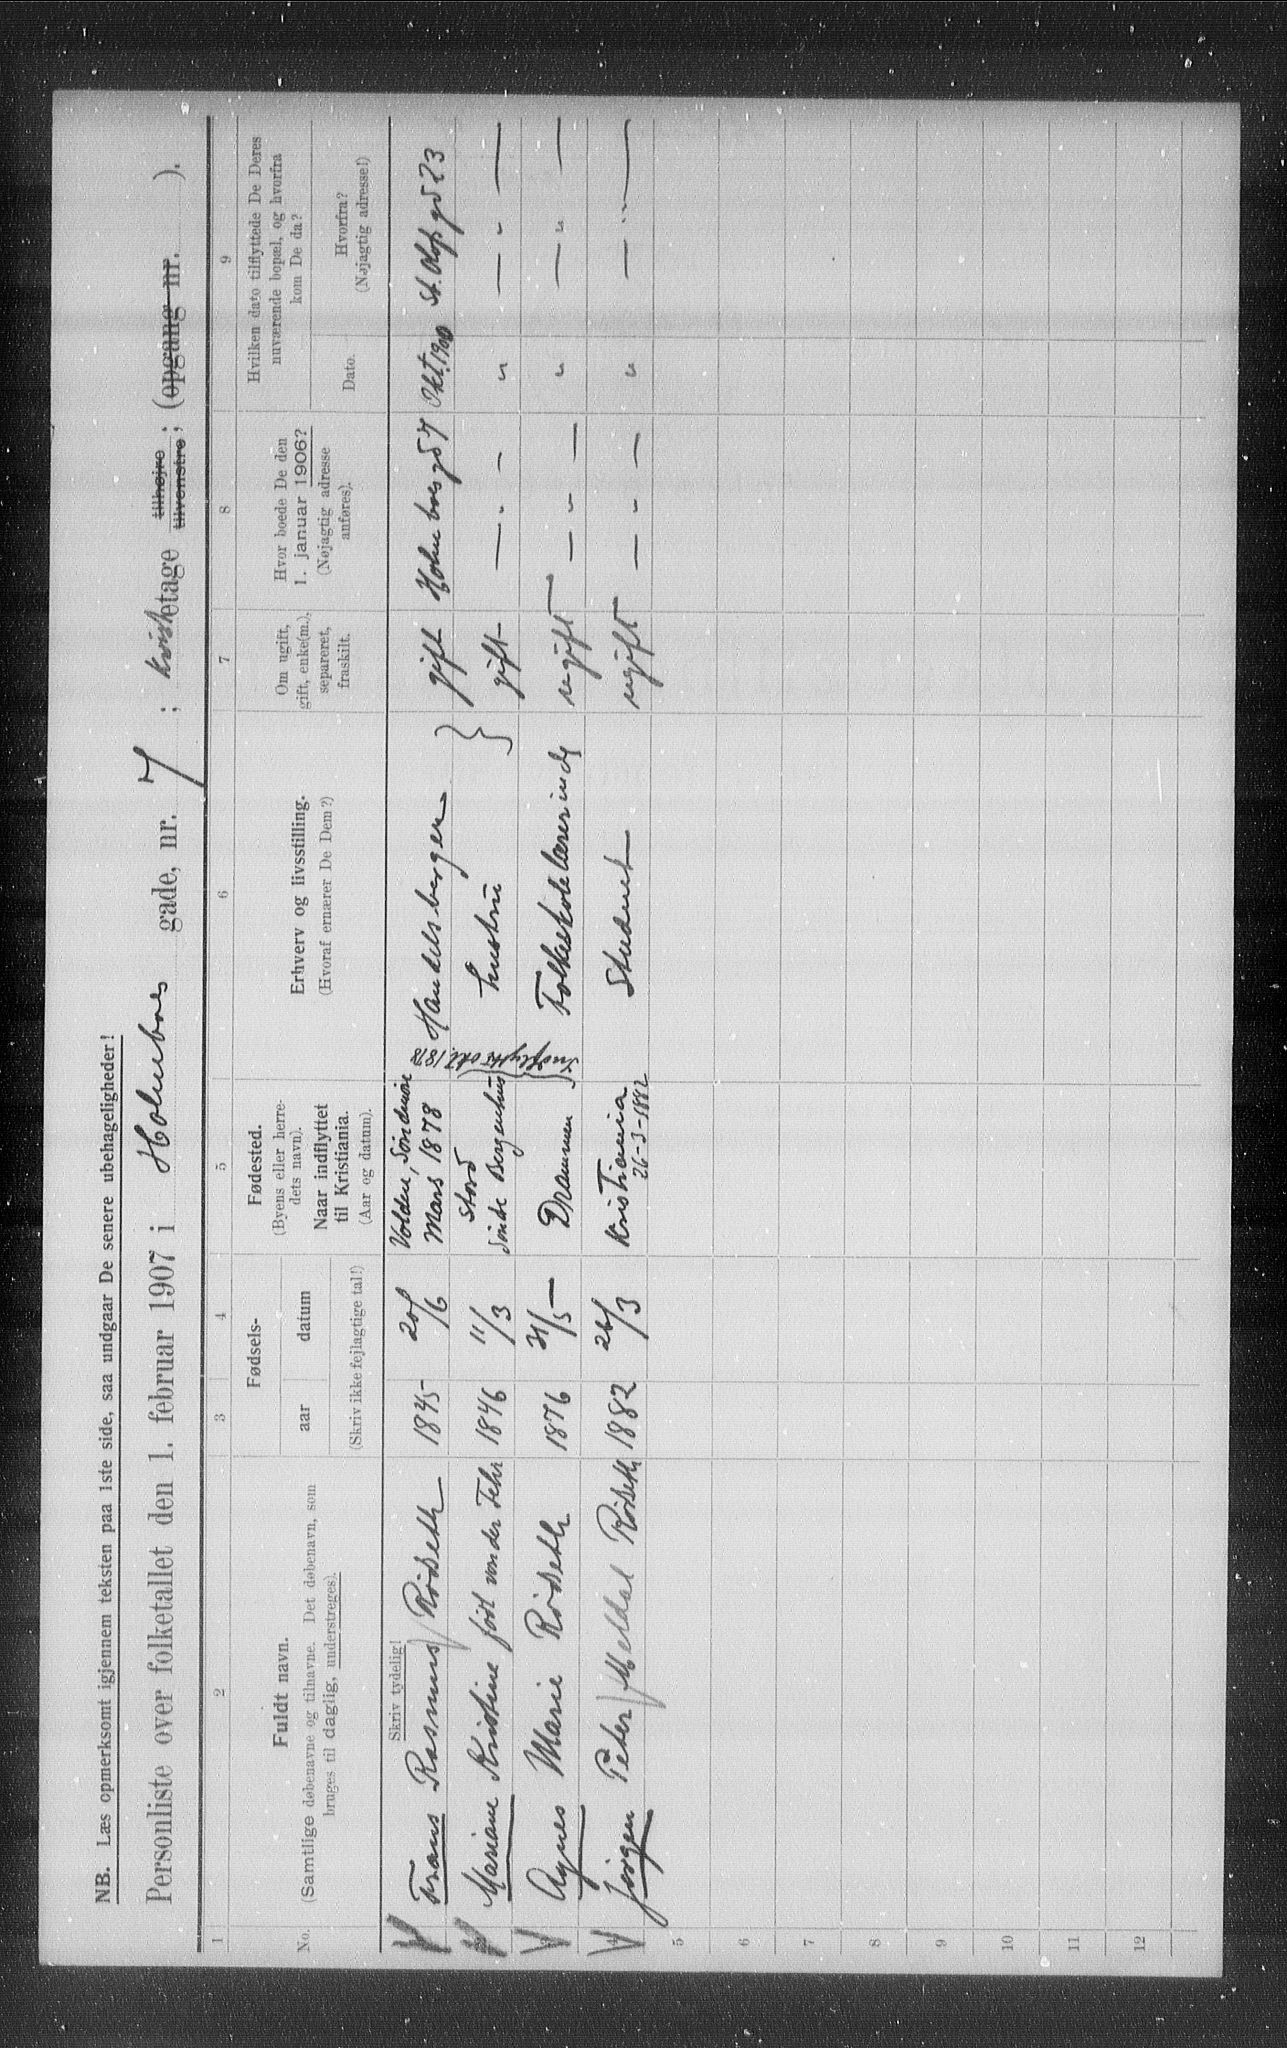 NB. Læs opmerksomt igjennem teksten paa 1ste side, saa undgaar De senere ubehageligheder!
Personliste over folketallet den 1. februar 1907 i Holmboes gade, nr. 7 ; kvistetage tilhøjre tilvenstre ; (opgang nr. ).
1 2 3 4 5 6 7 8 9
No.
Fuldt navn.
(Samtlige døbenavne og tilnavne. Det døbenavn, som
bruges til daglig, understreges).
Fødsels-
aar datum
(Skriv ikke fejlagtige tal!)
Fødested.
(Byens eller herre-
dets navn).
Naar indflyttet
til Kristiania.
(Aar og datum).
Erhverv og livsstilling.
(Hvoraf ernærer De Dem?)
Om ugift,
gift, enke(m.),
separeret,
fraskilt.
Hvor boede De den
1. januar 1906?
(Nøjagtig adresse
anføres).
Hvilken dato tilflyttede De Deres
nuværende bopæl, og hvorfra
kom De da?
Dato.
Hvorfra?
(Nøjagtig adresse!)
Skriv tydelig!
Frans Rasmus Rödseth 1845 20/6 Volden, Söndmöre Mars 1878 Handelsborger gift Holmboesgd 7 Okt. 1900 St. Olafs gd 23
Mariane Kristine født von der Fehr 1846 11/3 Stord Söndre Bergenhus Indflyttet okt. 1878 hustru gift — " — " — " —
Agnes Marie Rödseth 1876 31/5 Drammen Folkeskolelærerinde ugift — " — " — " —
4 Jørgen Peter Meldal Rödseth 1882 26/3 Kristiania 26-3-1882 Student ugift — " — " — " —
5
6
7
8
9
10
11
12